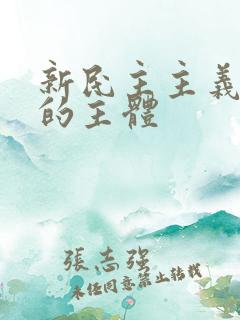 新民主主義
的主體
張志強
未經同意禁止轉載